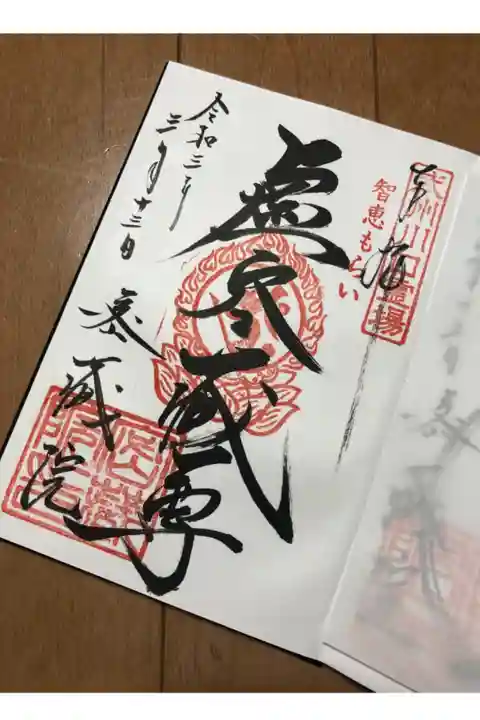 奉拝
武州川口霊場
智恵もらい
虚空蔵尊
令和三年
三月十三日